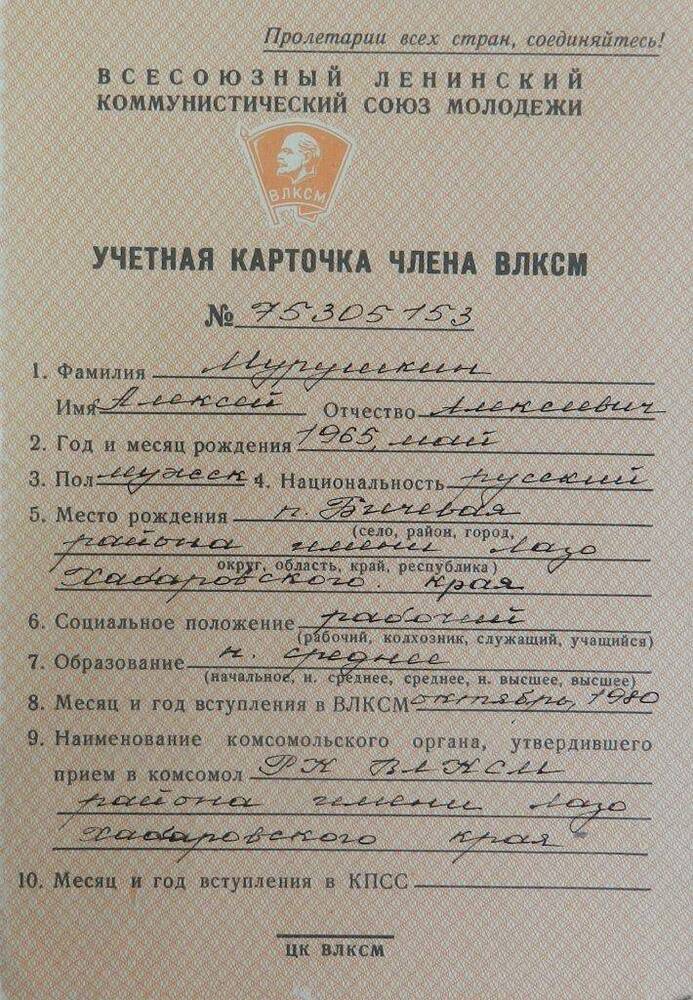 Пролетарии всех стран, соединяйтесь!
ВСЕСОЮЗНЫЙ ЛЕНИНСКИЙ
КОММУНИСТИЧЕСКИЙ СОЮЗ МОЛОДЕЖИ
ВЛКСМ
УЧЕТНАЯ КАРТОЧКА ЧЛЕНА ВЛКСМ
№ 75305153
1. Фамилия Мурушкин
Имя Алексей Отчество Алексеевич
2. Год и месяц рождения 1965, май
3. Пол мужск 4. Национальность русский
5. Место рождения п. Бичевая
(село, район, город,
района имени Лазо
округ, область, край, республика)
Хабаровского края
6. Социальное положение рабочий
(рабочий, колхозник, служащий, учащийся)
7. Образование н. среднее
(начальное, н. среднее, среднее, н. высшее, высшее)
8. Месяц и год вступления в ВЛКСМ октябрь, 1980
9. Наименование комсомольского органа, утвердившего
прием в комсомол РК ВЛКСМ
района имени Лазо
Хабаровского края
10. Месяц и год вступления в КПСС
ЦК ВЛКСМ